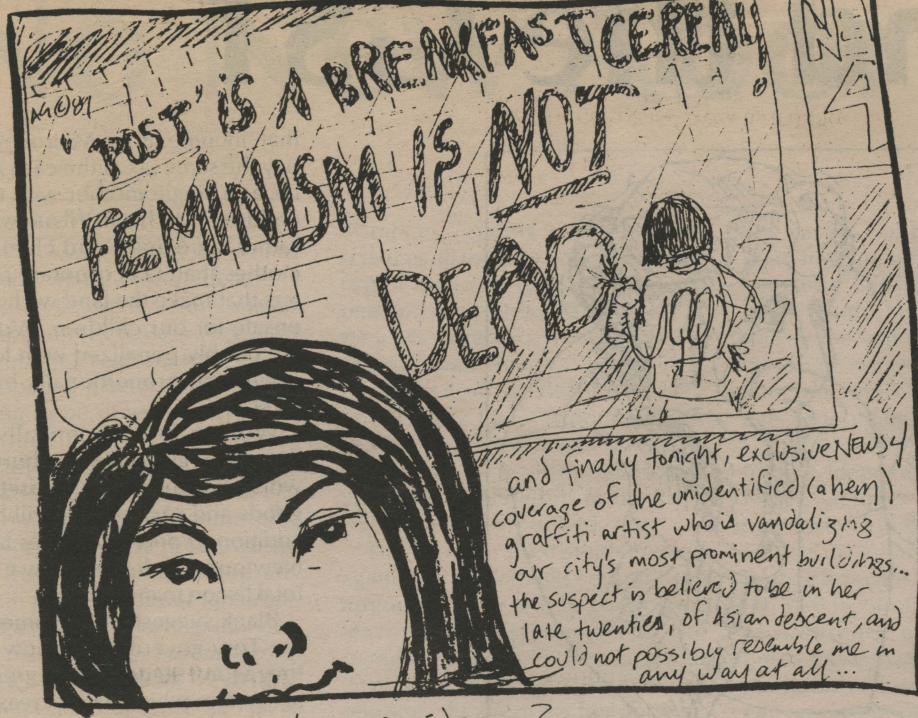 'POST' IS A BREAKFAST CEREAL!
FEMINISM IS NOT
DEAD
© 89
NEWS
4
and finally tonight, exclusive NEWS4
coverage of the unidentified (ahem)
graffiti artist who is vandalizing
our city's most prominent buildings...
the suspect is believed to be in her
late twenties, of Asian descent, and
could not possibly resemble me in
any way at all...